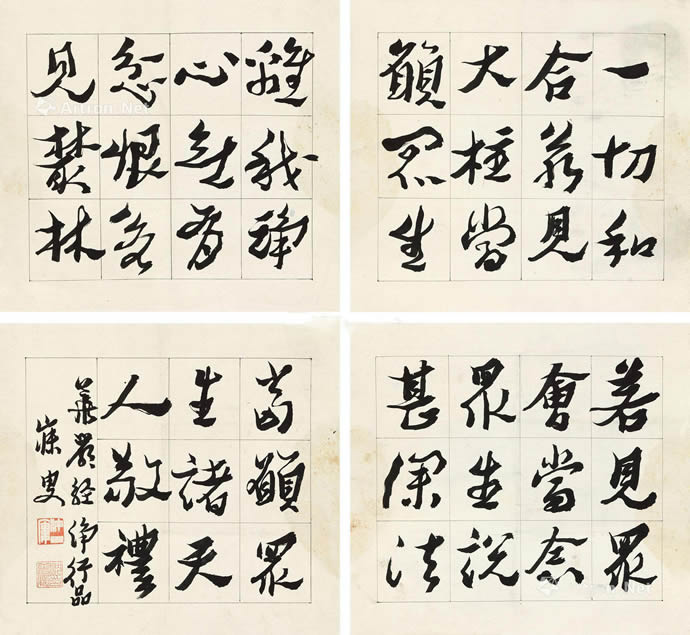 若見眾
會當念
眾生說
甚深法
一切和
合若見
大柱當
願眾生
離我諍
心無有
忿恨若
見叢林
當願眾
生諸天
人敬禮
華嚴經淨行品
寐叟
Artron.Net